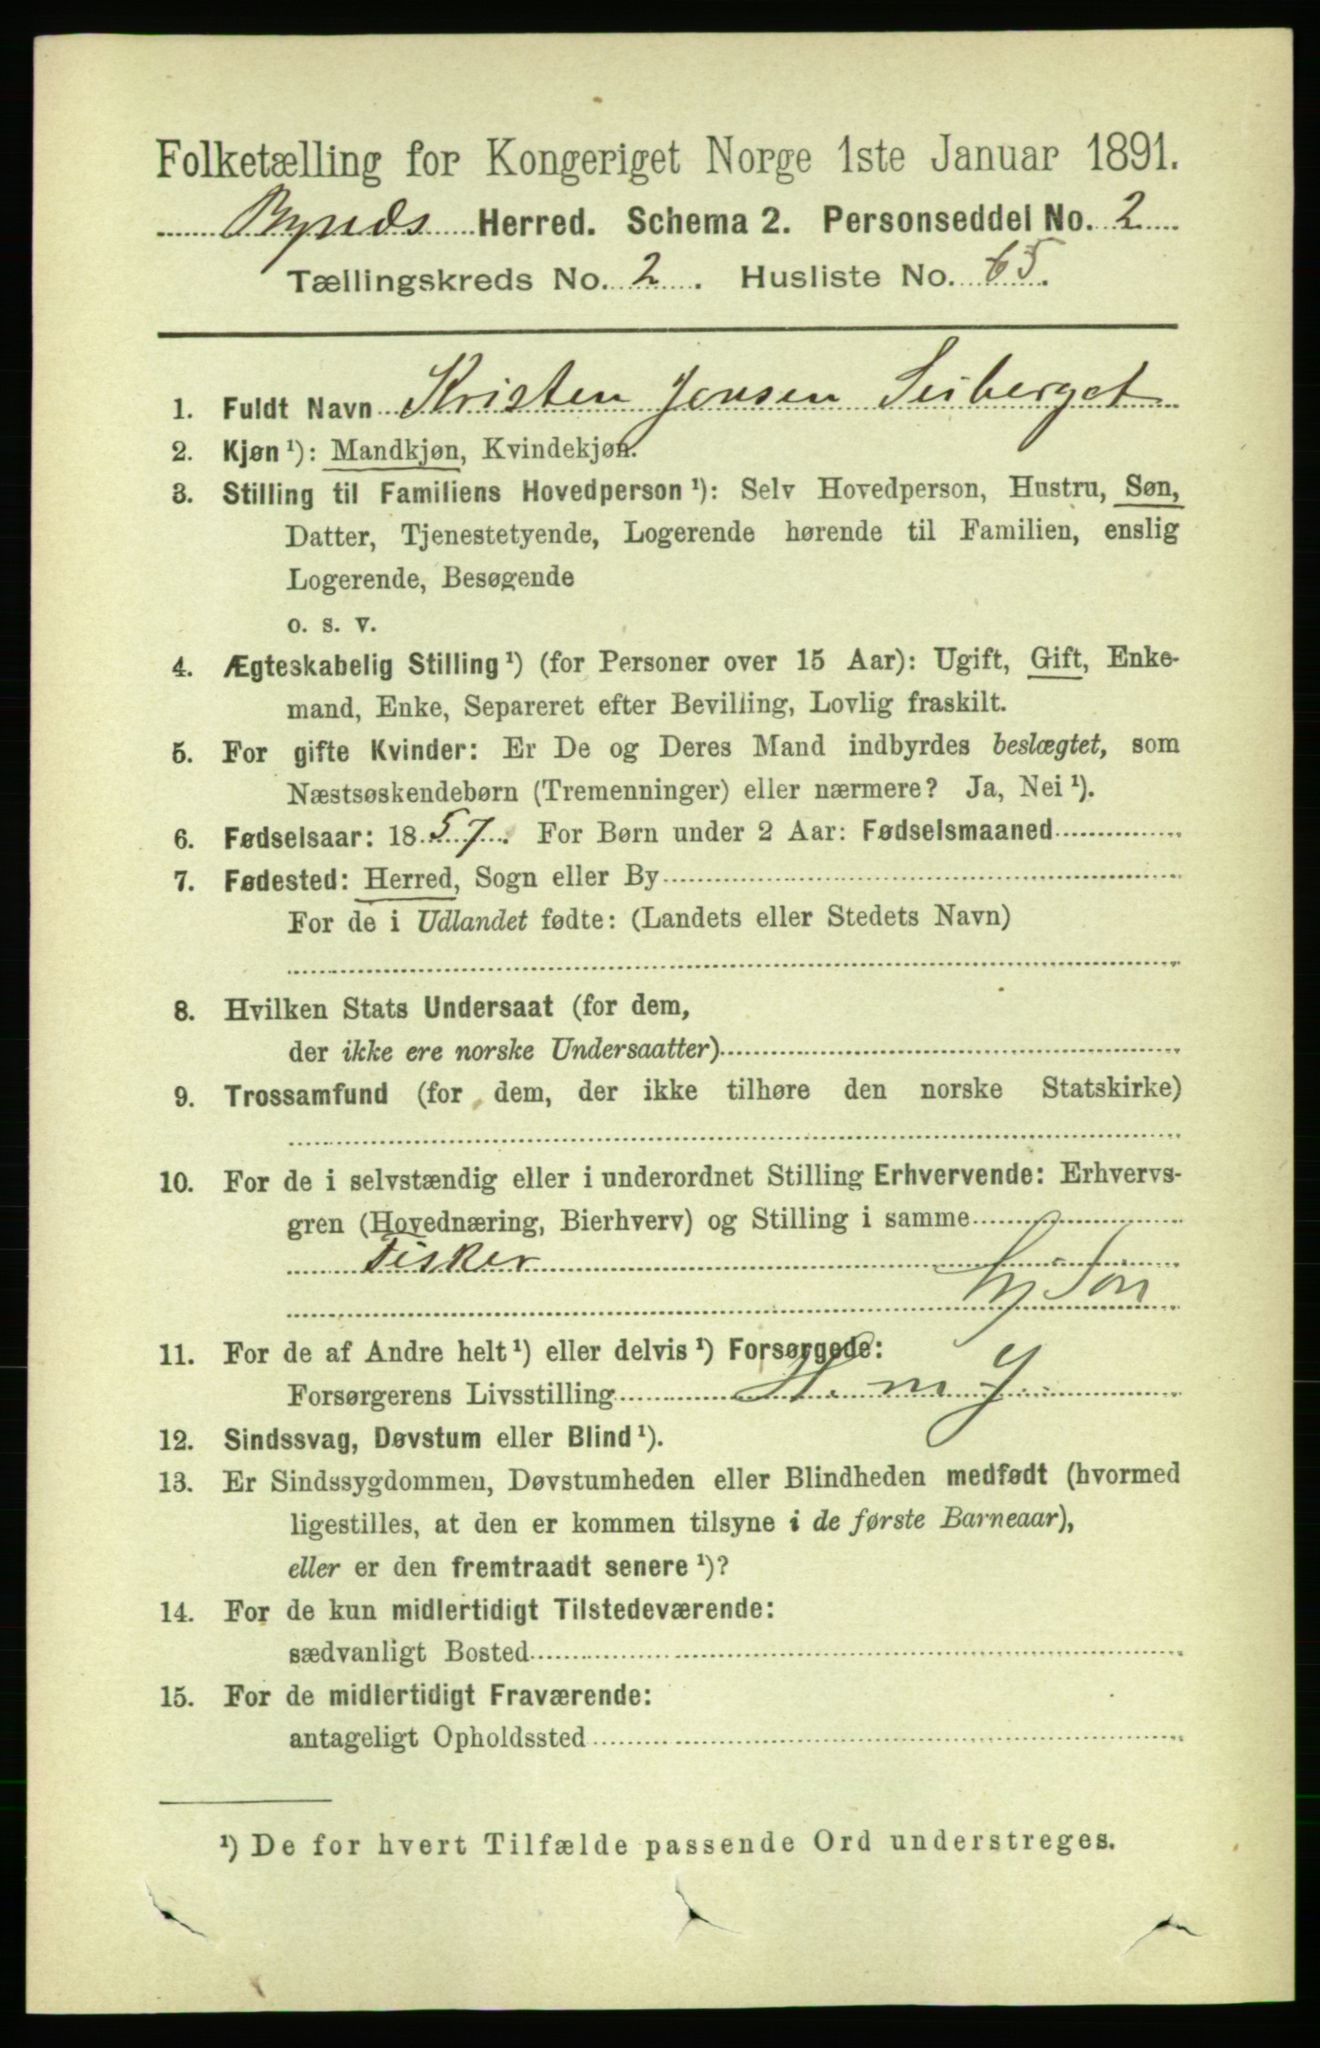 Folketælling for Kongeriget Norge 1ste Januar 1891.
Bynes Herred. Schema 2. Personseddel No. 2
Tællingskreds No. 2. Husliste No. 65.
1. Fuldt Navn Kristen Jensen
2. Kjøn ¹): Mandkjøn, Kvindekjøn.
3. Stilling til Familiens Hovedperson ¹): Selv Hovedperson, Hustru, Søn,
Datter, Tjenestetyende, Logerende hørende til Familien, enslig
Logerende, Besøgende
o. s. v.
4. Ægteskabelig Stilling ¹) (for Personer over 15 Aar): Ugift, Gift, Enke-
mand, Enke, Separeret efter Bevilling, Lovlig fraskilt.
5. For gifte Kvinder: Er De og Deres Mand indbyrdes beslægtet, som
Næstsøskendebørn (Tremenninger) eller nærmere? Ja, Nei ¹).
6. Fødselsaar: 1857. For Børn under 2 Aar: Fødselsmaaned
7. Fødested: Herred, Sogn eller By
For de i Udlandet fødte: (Landets eller Stedets Navn)
8. Hvilken Stats Undersaat (for dem,
der ikke ere norske Undersaatter)
9. Trossamfund (for dem, der ikke tilhøre den norske Statskirke)
10. For de i selvstændig eller i underordnet Stilling Erhvervende: Erhvervs-
gren (Hovednæring, Bierhverv) og Stilling i samme
Fisker
Søn
11. For de af Andre helt ¹) eller delvis ¹) Forsørgede:
Forsørgerens Livsstilling
12. Sindssvag, Døvstum eller Blind ¹).
13. Er Sindssygdommen, Døvstumheden eller Blindheden medfødt (hvormed
ligestilles, at den er kommen tilsyne i de første Barneaar),
eller er den fremtraadt senere ¹)?
14. For de kun midlertidigt Tilstedeværende:
sædvanligt Bosted
15. For de midlertidigt Fraværende:
antageligt Opholdssted
¹) De for hvert Tilfælde passende Ord understreges.